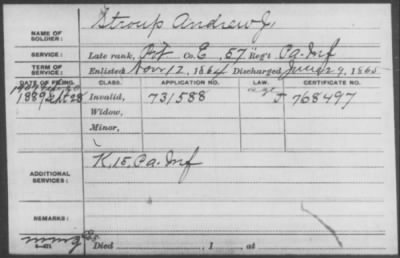 NAME OF SOLDIER: Stroup Andrew J
SERVICE: Late rank, Pvt Co. E, 57 Reg't Pa. Inf
TERM OF SERVICE: Enlisted Nov 12, 1864 Discharged June 29, 1865
DATE OF FILING. CLASS. APPLICATION NO. LAW. CERTIFICATE NO.
1889 Sept 28 Invalid, 731588 J 768497
Widow,
Minor,
ADDITIONAL SERVICES: K, 15, Pa. Inf
REMARKS:
Died , 1 , at